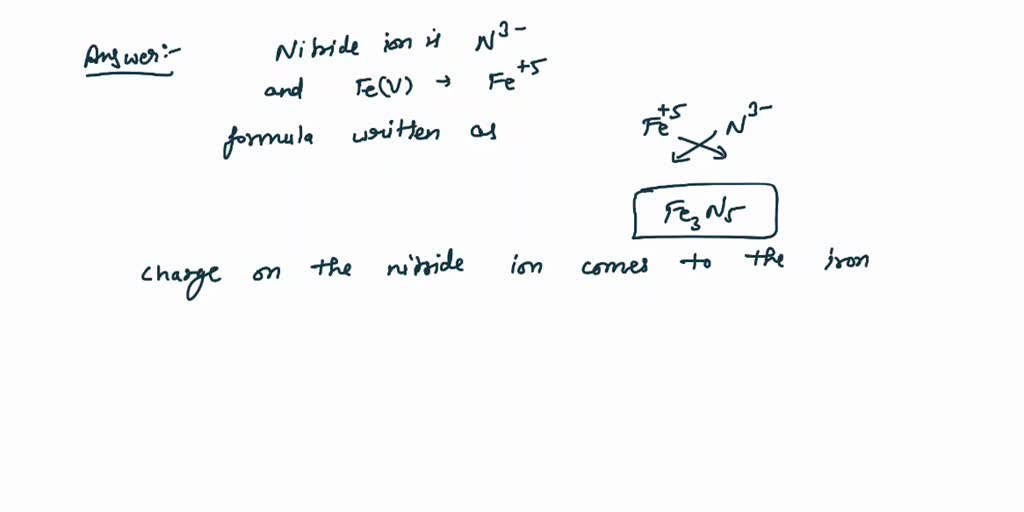 Answer:- Nitride ion is N³⁻
and Fe(V) → Fe⁺⁵
formula written as
Fe⁺⁵ N³⁻
Fe₃N₅
charge on the nitride ion comes to the iron